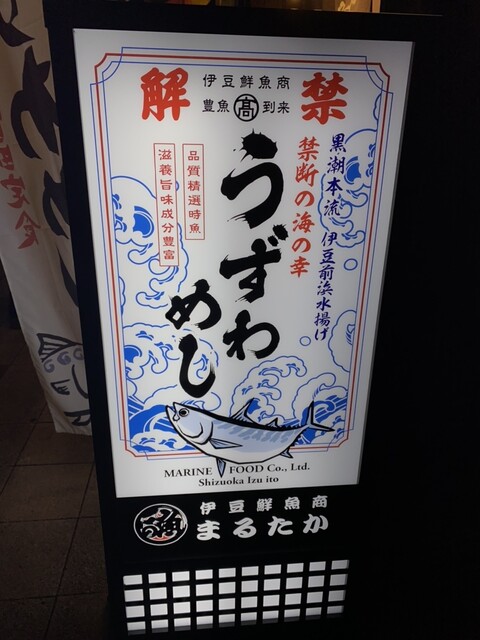 解禁
伊豆鮮魚商
豊魚 髙 到来
黒潮本流 伊豆前浜水揚げ
禁断の海の幸
うずわ
めし
品質精選時魚
滋養旨味成分豊富
MARINE FOOD Co., Ltd.
Shizuoka Izu ito
伊豆鮮魚商
まるたか